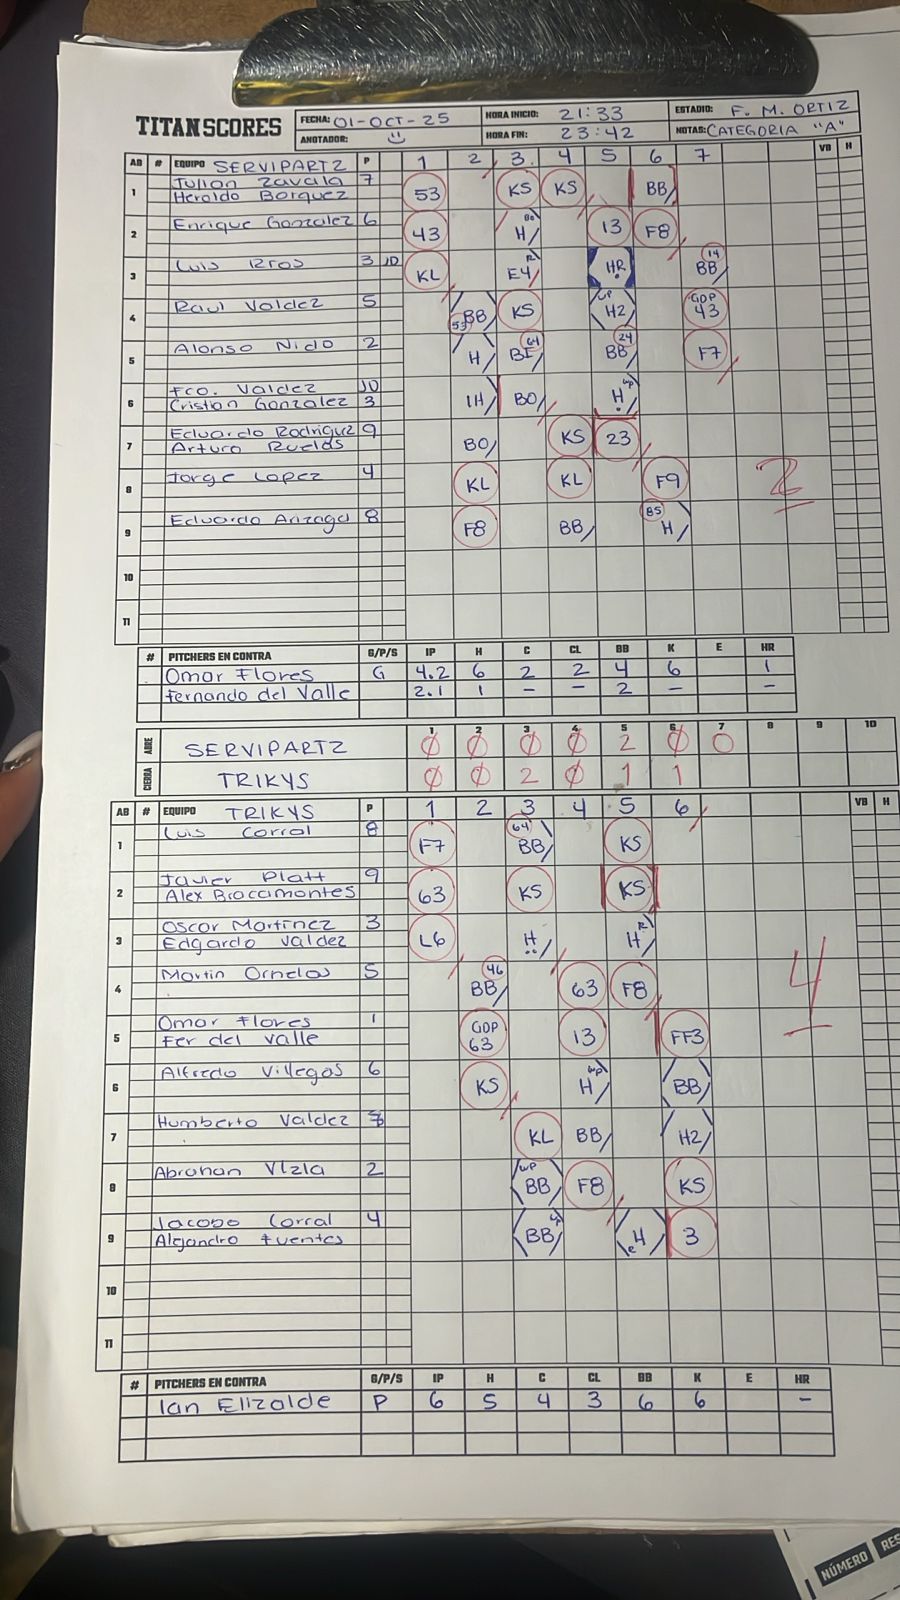 TITAN SCORES
FECHA: 01-OCT-25 HORA INICIO: 21:33 ESTADIO: F. M. ORTIZ
ANOTADOR: HORA FIN: 23:42 NOTAS: CATEGORIA "A"
AB # EQUIPO SERVIPARTZ P 1 2 3 4 5 6 7 VB H
1 Julian Zavala 7 53 KS KS BB
Heraldo Borquez
2 Enrique Gonzalez 6 43 H BO 13 F8
3 Luis Rros 3 JD KL E4 R HR BB 14
4 Raul Valdez 5 BB 53 KS H2 WP GDP 43
5 Alonso Nido 2 H 64 BB 24 F7
6 Fco. Valdez JD 1H BO H WP
Cristian Gonzalez 3
7 Eduardo Rodriguez 9 BO KS 23
Arturo Ruelas
8 Jorge Lopez 4 KL KL F9
9 Eduardo Arizaga 8 F8 BB H
10
11
2
# PITCHERS EN CONTRA G/P/S IP H C CL BB K E HR
Omar Flores G 4.2 6 2 2 4 6 1
Fernando del Valle 2.1 1 – – 2 – –
ABRE 1 2 3 4 5 6 7 8 9 10
SERVIPARTZ 0 0 0 0 2 0 0
CIERRA TRIKYS 0 0 2 0 1 1
AB # EQUIPO TRIKYS P 1 2 3 4 5 6 VB H
1 Luis Corral 8 F7 64 BB KS
2 Javier Platt 9 63 KS KS
Alex Bracamontes
3 Oscar Martinez 3 L6 H H R
Edgardo Valdez
4 Martin Ornelas 5 BB 46 63 F8
5 Omar Flores 1 GDP 63 13 FF3
Fer del Valle
6 Alfredo Villegas 6 KS H WP BB
7 Humberto Valdez KL BB H2
8 Abrahan Vizla 2 WP BB F8 KS
9 Jacobo Corral 4 BB e4 3
Alejandro Fuentes
10
11
4
# PITCHERS EN CONTRA G/P/S IP H C CL BB K E HR
Ian Elizalde P 6 5 4 3 6 6 –
NÚMERO RES